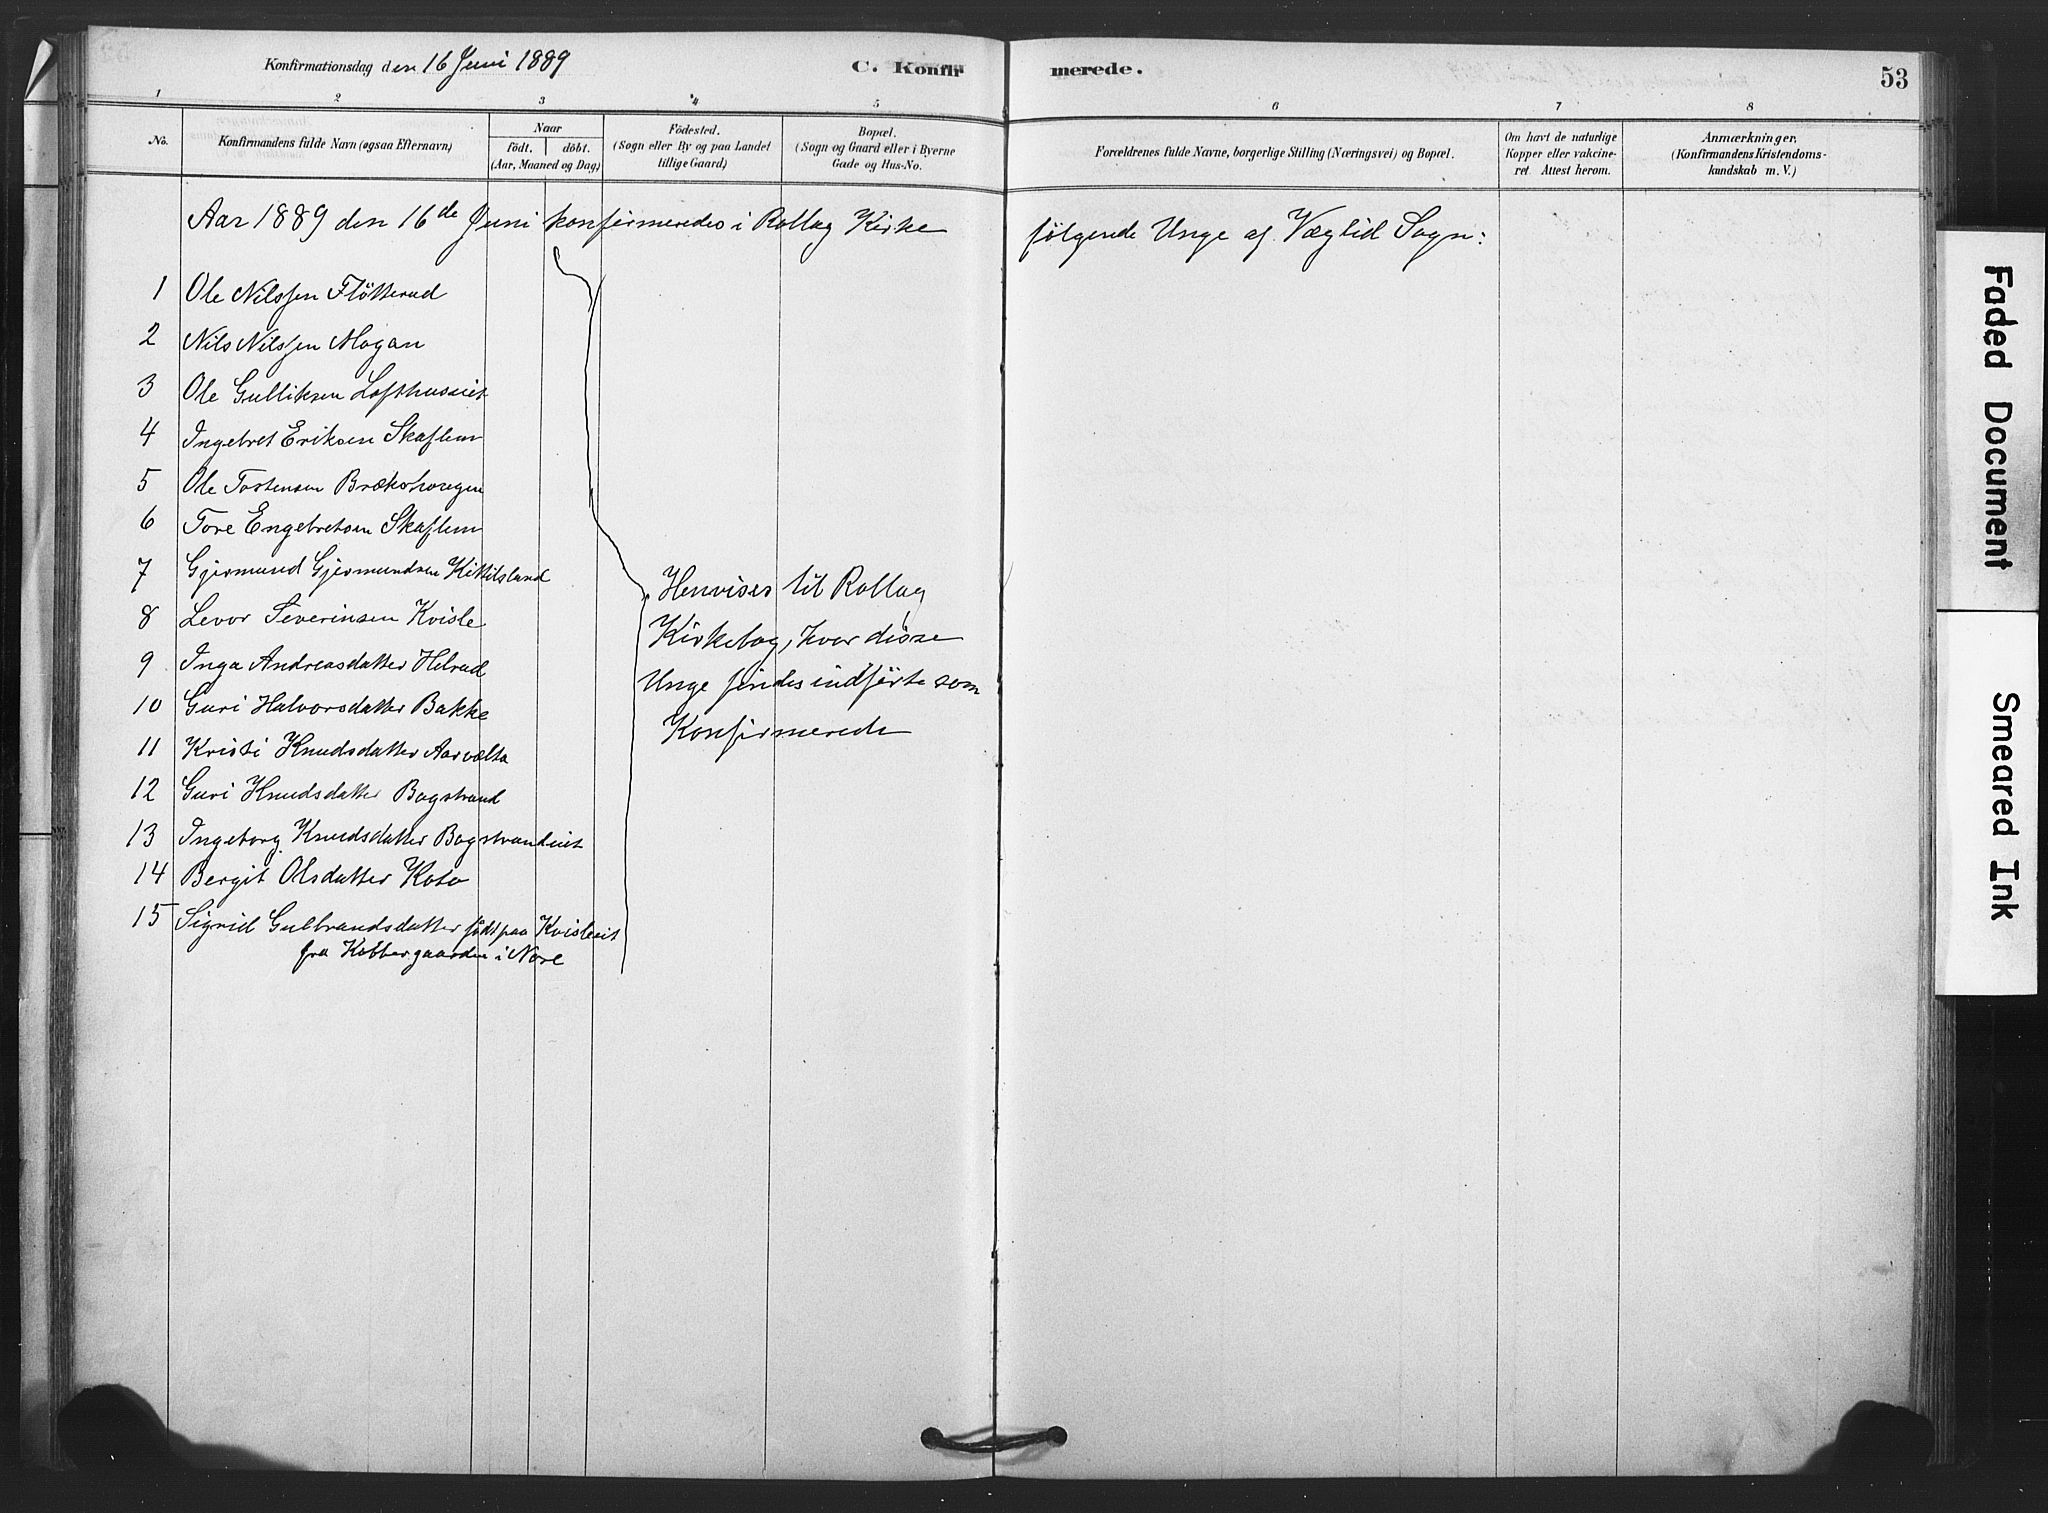 Konfirmationsdag den 16 Juni 1889
C. Konfirmerede.
53
1 2 3 4 5 6 7 8
No.
Konfirmandens fulde Navn (ogsaa Efternavn)
Naar
födt. döbt.
(Aar, Maaned og Dag)
Födested.
(Sogn eller By og paa Landet
tillige Gaard)
Bopæl.
(Sogn og Gaard eller i Byerne
Gade og Hus-No.
Forældrenes fulde Navne, borgerlige Stilling (Næringsvei) og Bopæl.
Om havt de naturlige
Kopper eller vakcine-
ret Attest herom.
Anmærkninger,
(Konfirmandens Kristendoms-
kundskab m. V.)
Aar 1889 den 16de Juni konfirmeredes i Rollag Kirke følgende Unge af Væglid Sogn:
1 Ole Nilssen Fløtterud
2 Nils Nilssen Mogan
3 Ole Gulliksen Lofthuseiet
4 Ingebret Eriksen Skaflem
5 Ole Torstensen Brækshovgen
6 Tore Engebretsen Skaflem
7 Gjermund Gjermundsen Kittilsland
8 Levor Severinsen Kvisle
9 Inga Andreasdatter Helrud
10 Guri Halvorsdatter Bakke
11 Kristi Knudsdatter Aarvelta
12 Guri Knudsdatter Bagstrand
13 Ingeborg Knudsdatter Bagstrandeiet
14 Bergit Olsdatter Koto
15 Sigrid Gulbrandsdatter født paa Kvisleeit
fra Kobbergaarden i Nore
Henvises til Rollag
Kirkebog, hvor disse
Unge findes indførte som
Konfirmerede
Faded Document
Smeared Ink